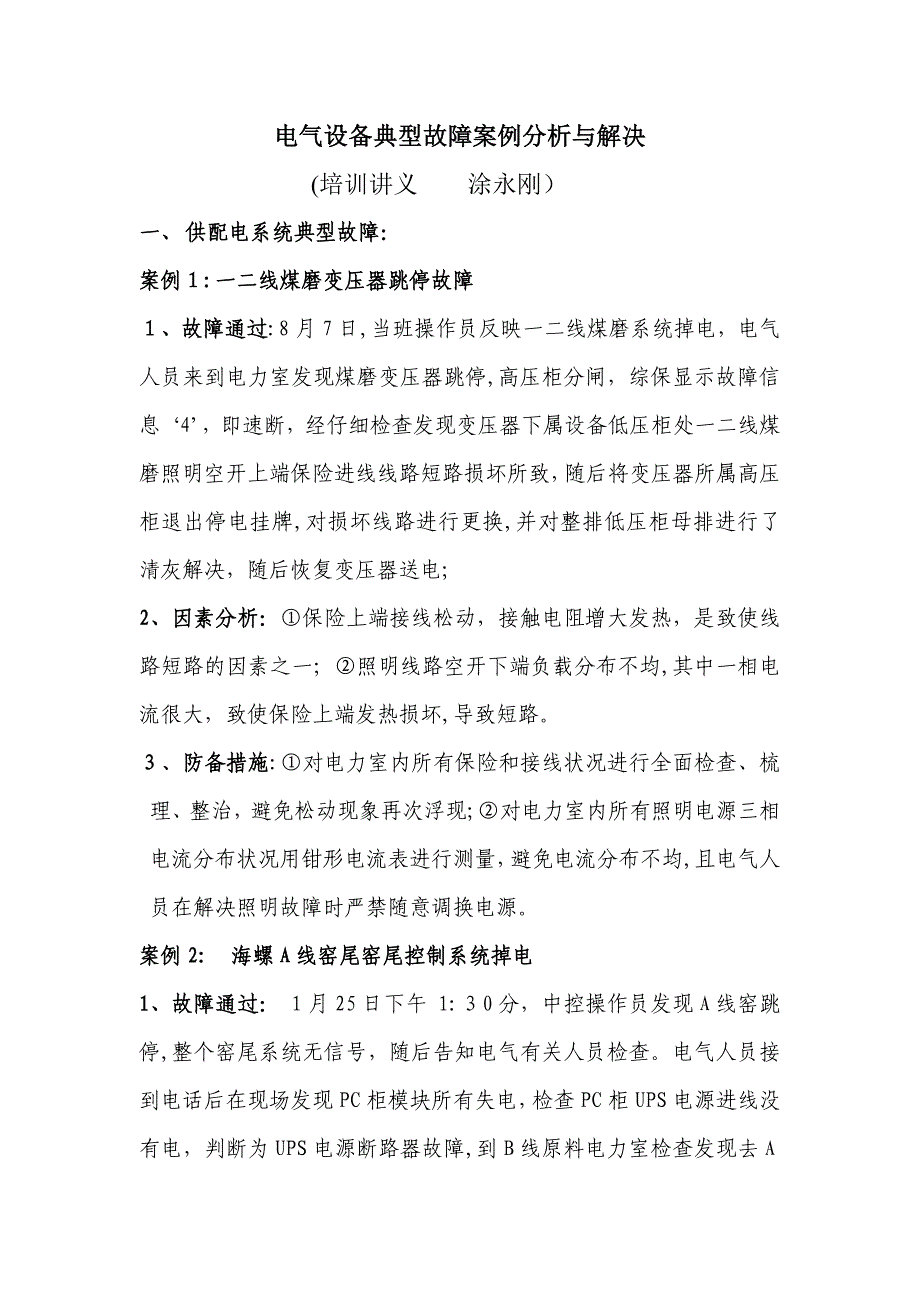 电气设备典型故障案例分析与解决
(培训讲义　　涂永刚）
一、供配电系统典型故障:
案例1:一二线煤磨变压器跳停故障
1、故障通过:8月7日,当班操作员反映一二线煤磨系统掉电，电气
人员来到电力室发现煤磨变压器跳停,高压柜分闸，综保显示故障信
息‘4’，即速断，经仔细检查发现变压器下属设备低压柜处一二线煤
磨照明空开上端保险进线线路短路损坏所致，随后将变压器所属高压
柜退出停电挂牌,对损坏线路进行更换,并对整排低压柜母排进行了
清灰解决，随后恢复变压器送电;
2、因素分析: ①保险上端接线松动，接触电阻增大发热，是致使线
路短路的因素之一；②照明线路空开下端负载分布不均,其中一相电
流很大，致使保险上端发热损坏,导致短路。
３、防备措施:①对电力室内所有保险和接线状况进行全面检查、梳
理、整治，避免松动现象再次浮现;②对电力室内所有照明电源三相
电流分布状况用钳形电流表进行测量，避免电流分布不均,且电气人
员在解决照明故障时严禁随意调换电源。
案例2: 海螺A线窑尾窑尾控制系统掉电
1、故障通过: 1月25日下午 1:30分，中控操作员发现A线窑跳
停,整个窑尾系统无信号，随后告知电气有关人员检查。电气人员接
到电话后在现场发现PC柜模块所有失电，检查PC柜UPS电源进线没
有电，判断为UPS电源断路器故障,到B线原料电力室检查发现去A